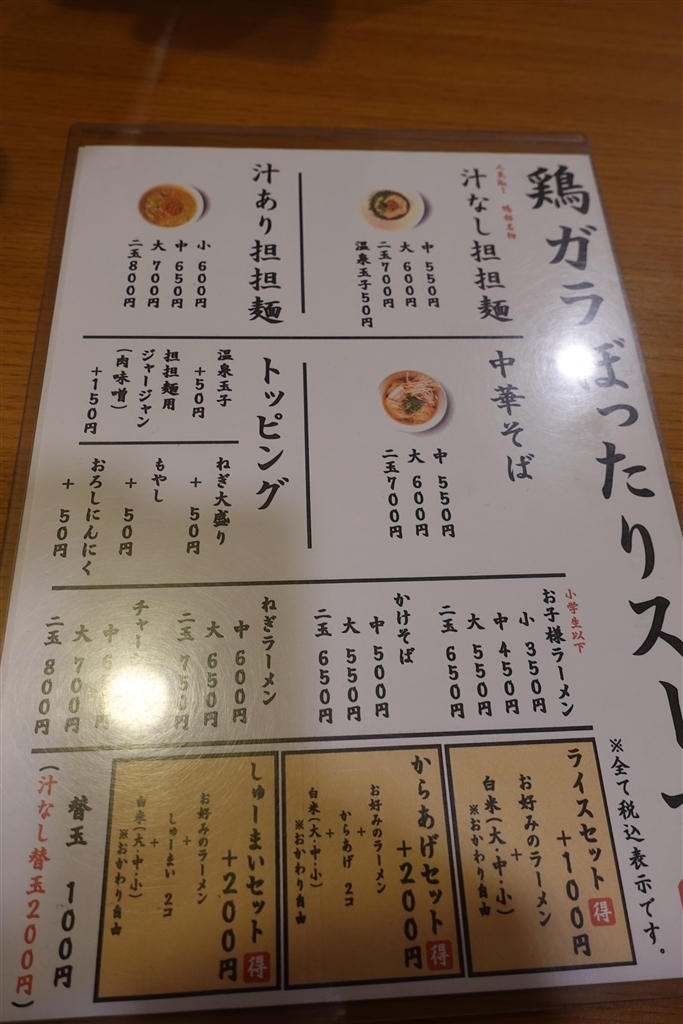 鶏ガラぼったりスープ
※全て税込表示です。
人気No.1 鳴龍名物
汁なし担担麺
中 550円
大 600円
二玉700円
温泉玉子50円
汁あり担担麺
小 600円
中 650円
大 700円
二玉800円
中華そば
中 550円
大 600円
二玉700円
トッピング
温泉玉子
+50円
担担麺用
ジャージャン
(肉味噌)
+150円
ねぎ大盛り
+ 50円
もやし
+ 50円
おろしにんにく
+ 50円
小学生以下
お子様ラーメン
小 350円
中 450円
大 550円
二玉 650円
かけそば
中 500円
大 550円
二玉 650円
ねぎラーメン
中 600円
大 650円
二玉 750円
チャー
中 6
大 700円
二玉 800円
ライスセット 得
+100円
お好みのラーメン
+
白米(大・中・小)
※おかわり自由
からあげセット 得
+200円
お好みのラーメン
+
からあげ 2コ
+
白米(大・中・小)
※おかわり自由
しゅーまいセット 得
+200円
お好みのラーメン
+
しゅーまい 2コ
+
白米(大・中・小)
※おかわり自由
替玉 100円
(汁なし替玉200円)